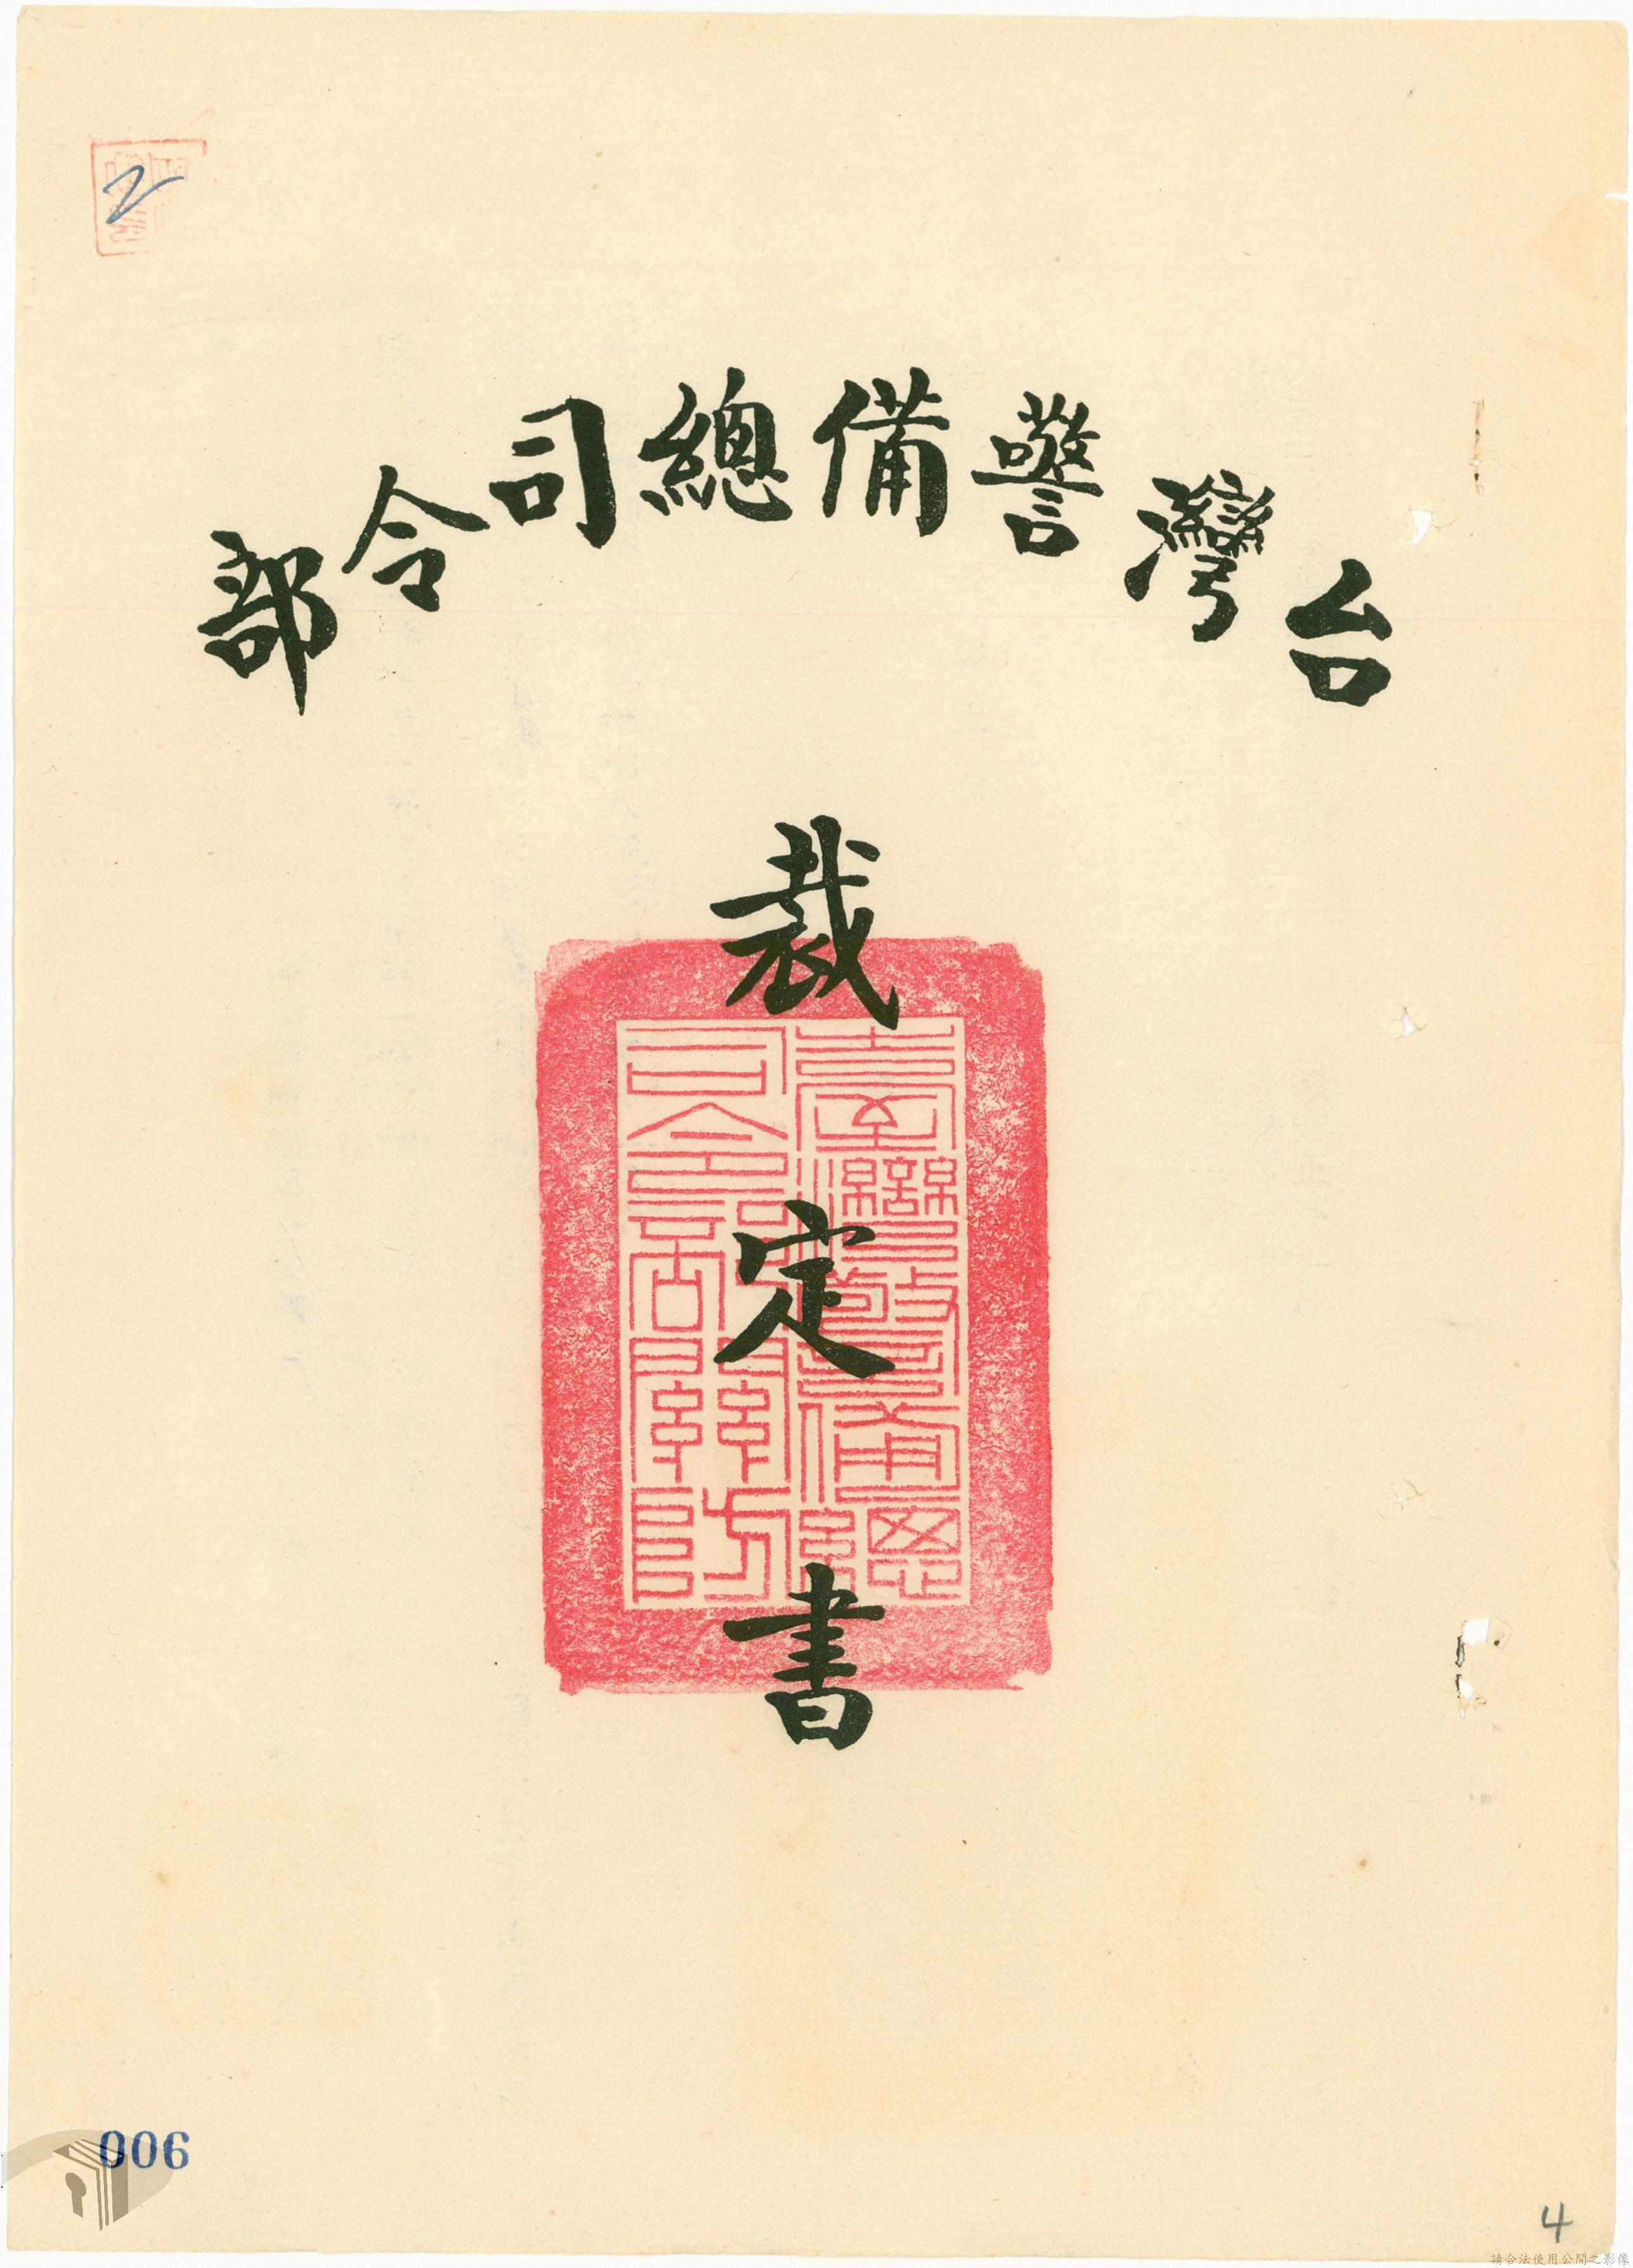 台灣警備總司令部
裁定書
臺灣警備總
司令部關防
2
006
4
請合法使用公開之影像